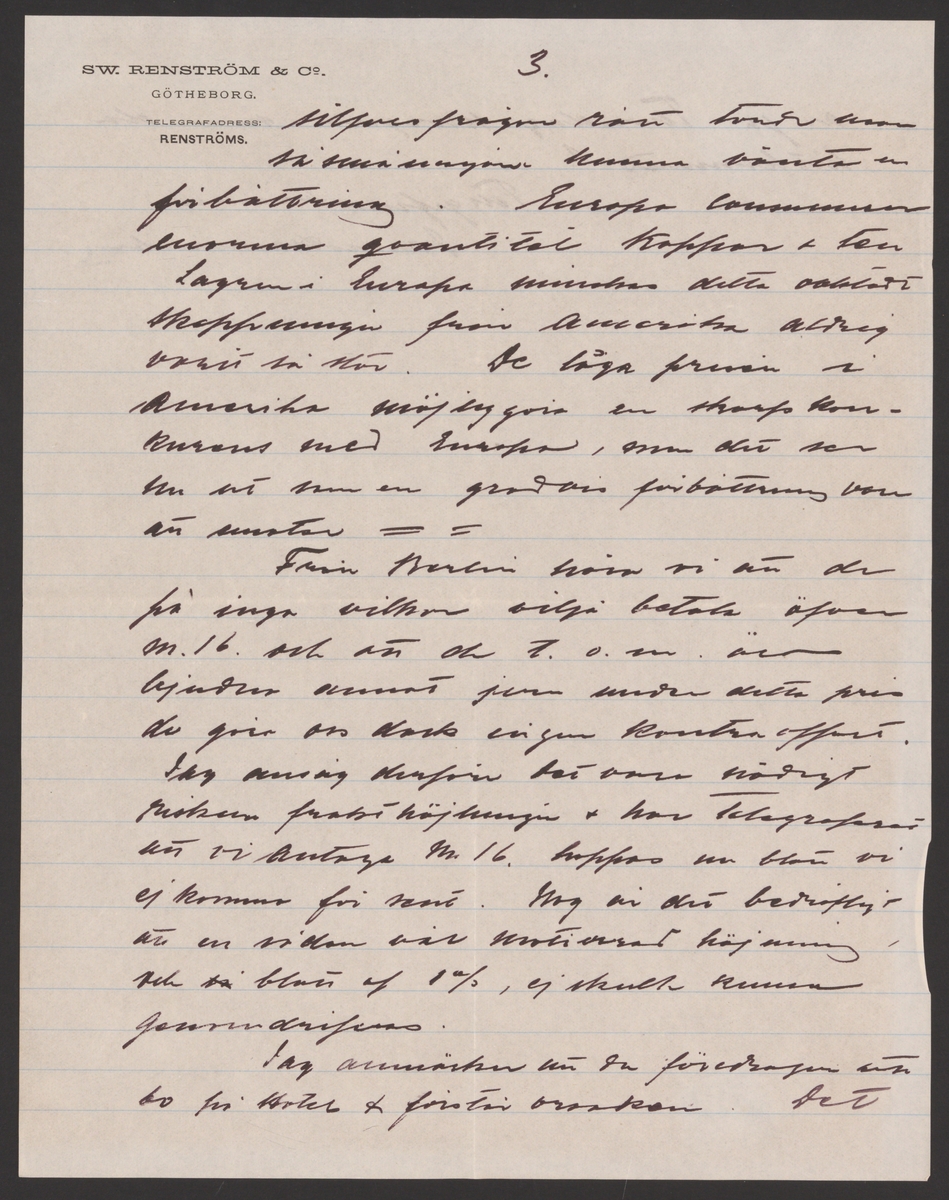 SW. RENSTRÖM & Cº.
GÖTHEBORG.
TELEGRAFADRESS:
RENSTRÖMS.
3.
silfverfrågan rätt torde man
så småningom kunna vänta en
förbättring. Europa consumerar
enorma quantitét Koppar & ten
Lagren i Europa minskas detta oaktadt
skeppningen från Amerika aldrig
varit så stor. De låga prisen i
Amerika möjliggöra en skarp kon-
kurens med Europa, men det ser
nu ut som en gradvis förbättring vore
att emotse = =
Från Berlin höra vi att de
på inga vilkor vilja betala öfver
M. 16. och att de t. o. m. äro
bjudna annat jern under detta pris
de göra oss dock ingen kontraoffert.
Jag ansåg derföre det vara nödigt
riskera frakthöjningen & har telegraferat
att vi antaga M. 16. hoppas nu blott vi
ej komma för sent. Nog är det bedröfligt
att en sådan väl motiverad höjning,
och blott af 1%, ej skulle kunna
genomdrifvas.
Jag anmärker att du föredrager att
bo på Hotel & förstår orsaken. Det